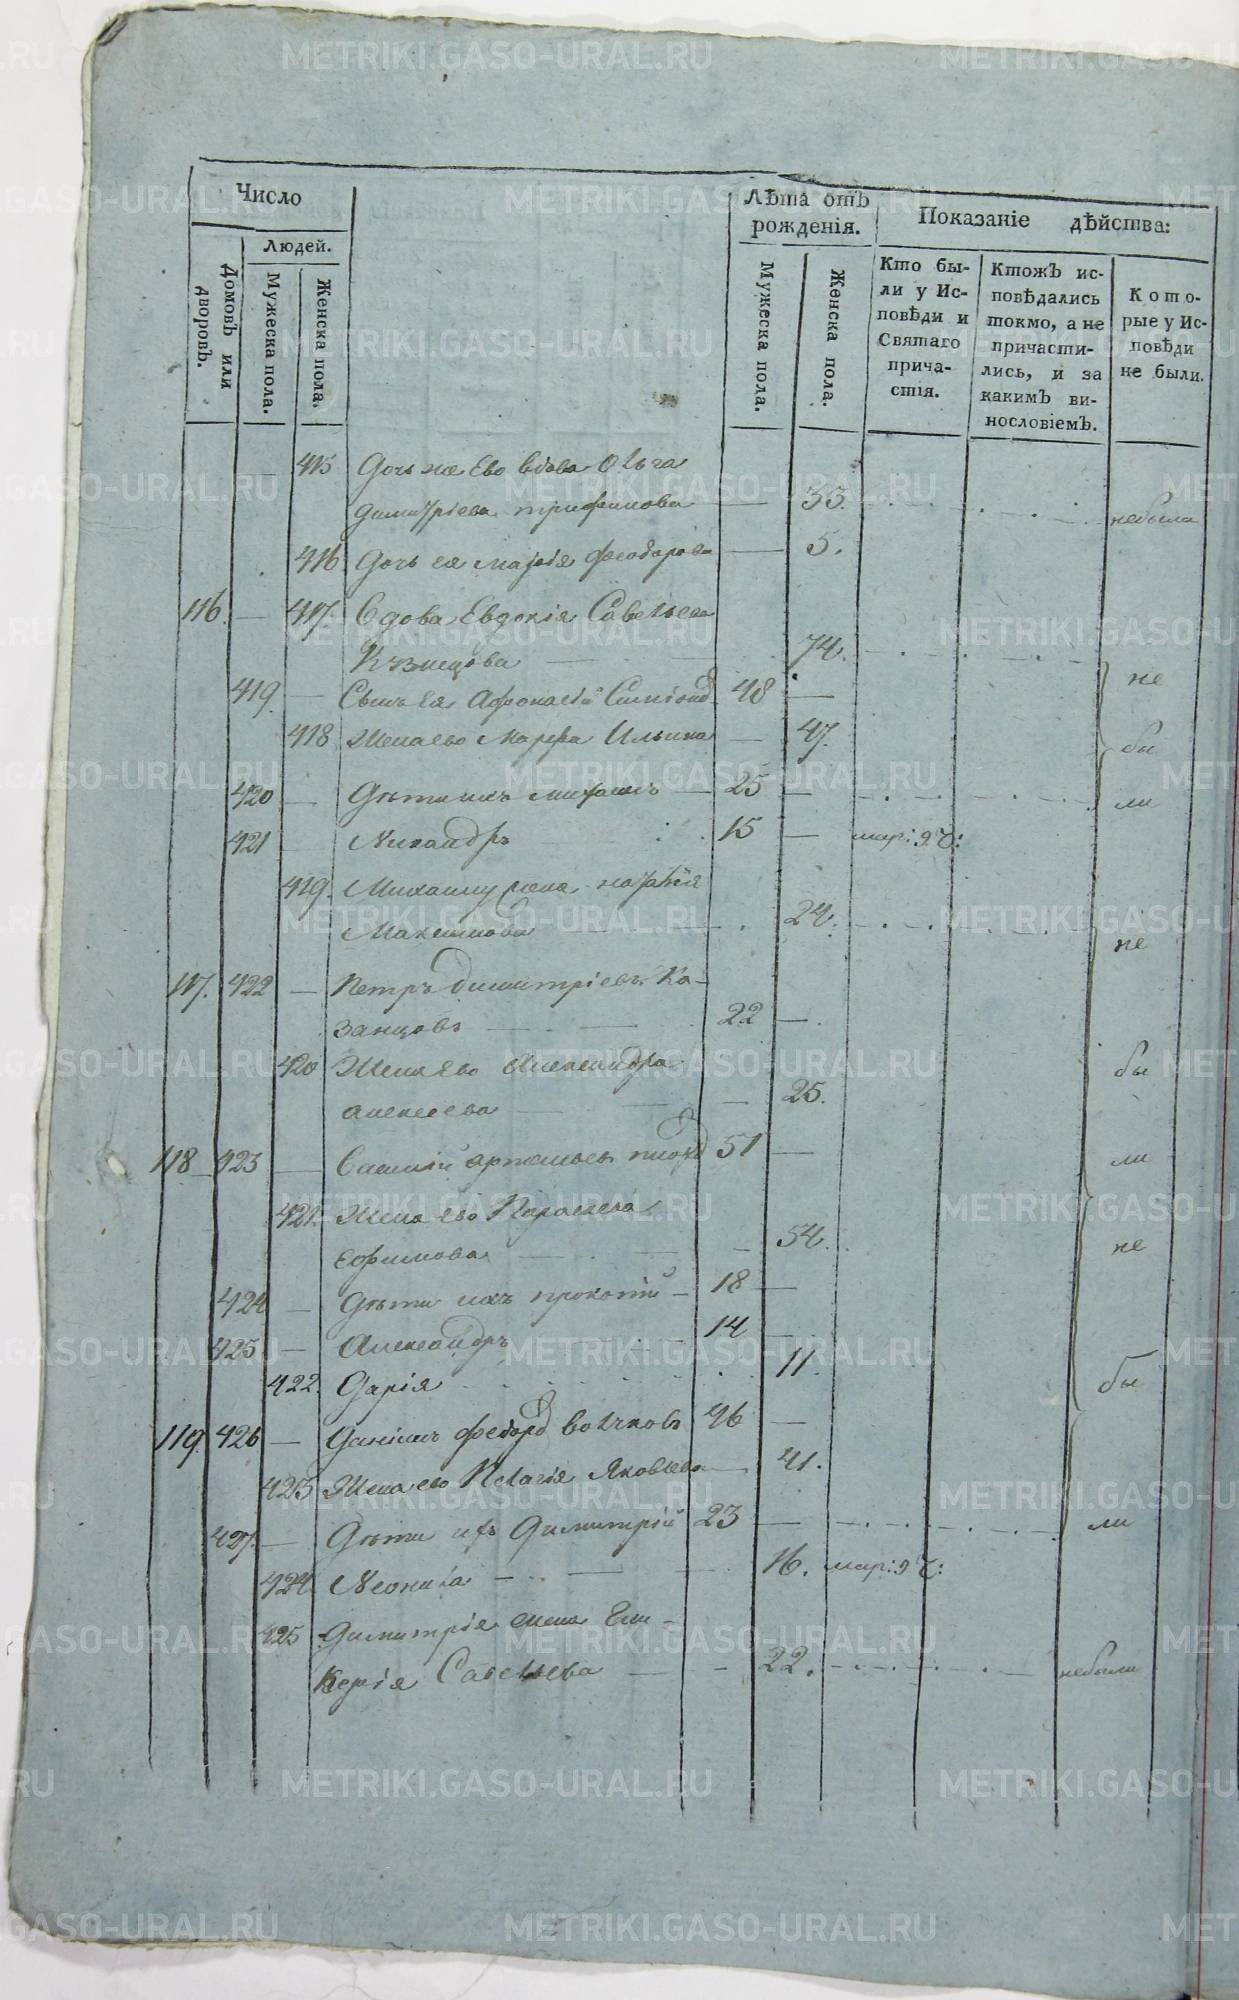 Число
Людей.
Домовъ или дворовъ.
Мужеска пола.
Женска пола.
Лѣта отъ рожденія.
Мужеска пола.
Женска пола.
Показаніе дѣйства:
Кто были у Исповѣди и Святаго причастія.
Ктожъ исповѣдались токмо, а не причастились, и за какимъ винословіемъ.
Которые у Исповѣди не были.
415 Дочь же Ево вдова Ольга
Димитріева трифанова — 33. небыла
416 Дочь ея марія феодорова — 5.
116. — 417. Вдова Евдокія Савельева
Кузнецова — 74.
419 — Сынъ Ея Афонасій 48 — не
418 Жена ево марфа Ильина — 47. бы
420 — Дѣти ихъ михаилъ — 25 — ли
421 Никандръ 15 — мар: 9 ч:
419. Михаилу жена наталія
Максимова 24. не
117. 422 — Петръ Димитріевъ Ка-
занцовъ — 22 —.
420 Жена Ево Александра бы
алексеева — 25.
118 423 — Василій 51 — ли
421. Жена ево Параскева
Ефимова — 54. не
424 — Дѣти ихъ прокопій — 18 —
425 — Александръ 14 —
422. Дарія 11. бы
119. 426 — Даніилъ федоров Волчковъ 46 —
423 Жена ево Пелагія Яковлева — 41.
427. — Дѣти ихъ Димитрій 23 — ли
424 Леонила — 16. мар: 9 ч:
425 Димитрія жена Гли-
керія Савельева — 22. небыли
METRIKI.GASO-URAL.RU